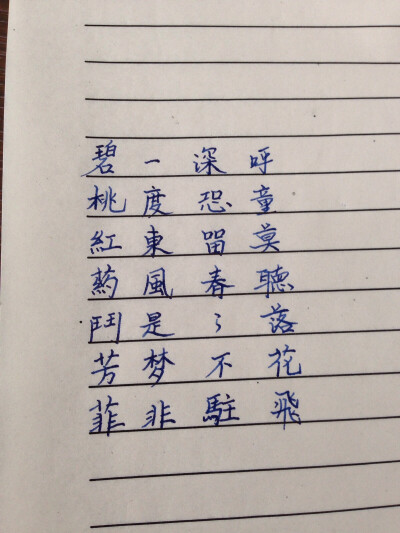 碧桃紅葯鬥芳菲
一度東風是梦非
深恐留春〻不駐
呼童莫聽落花飛